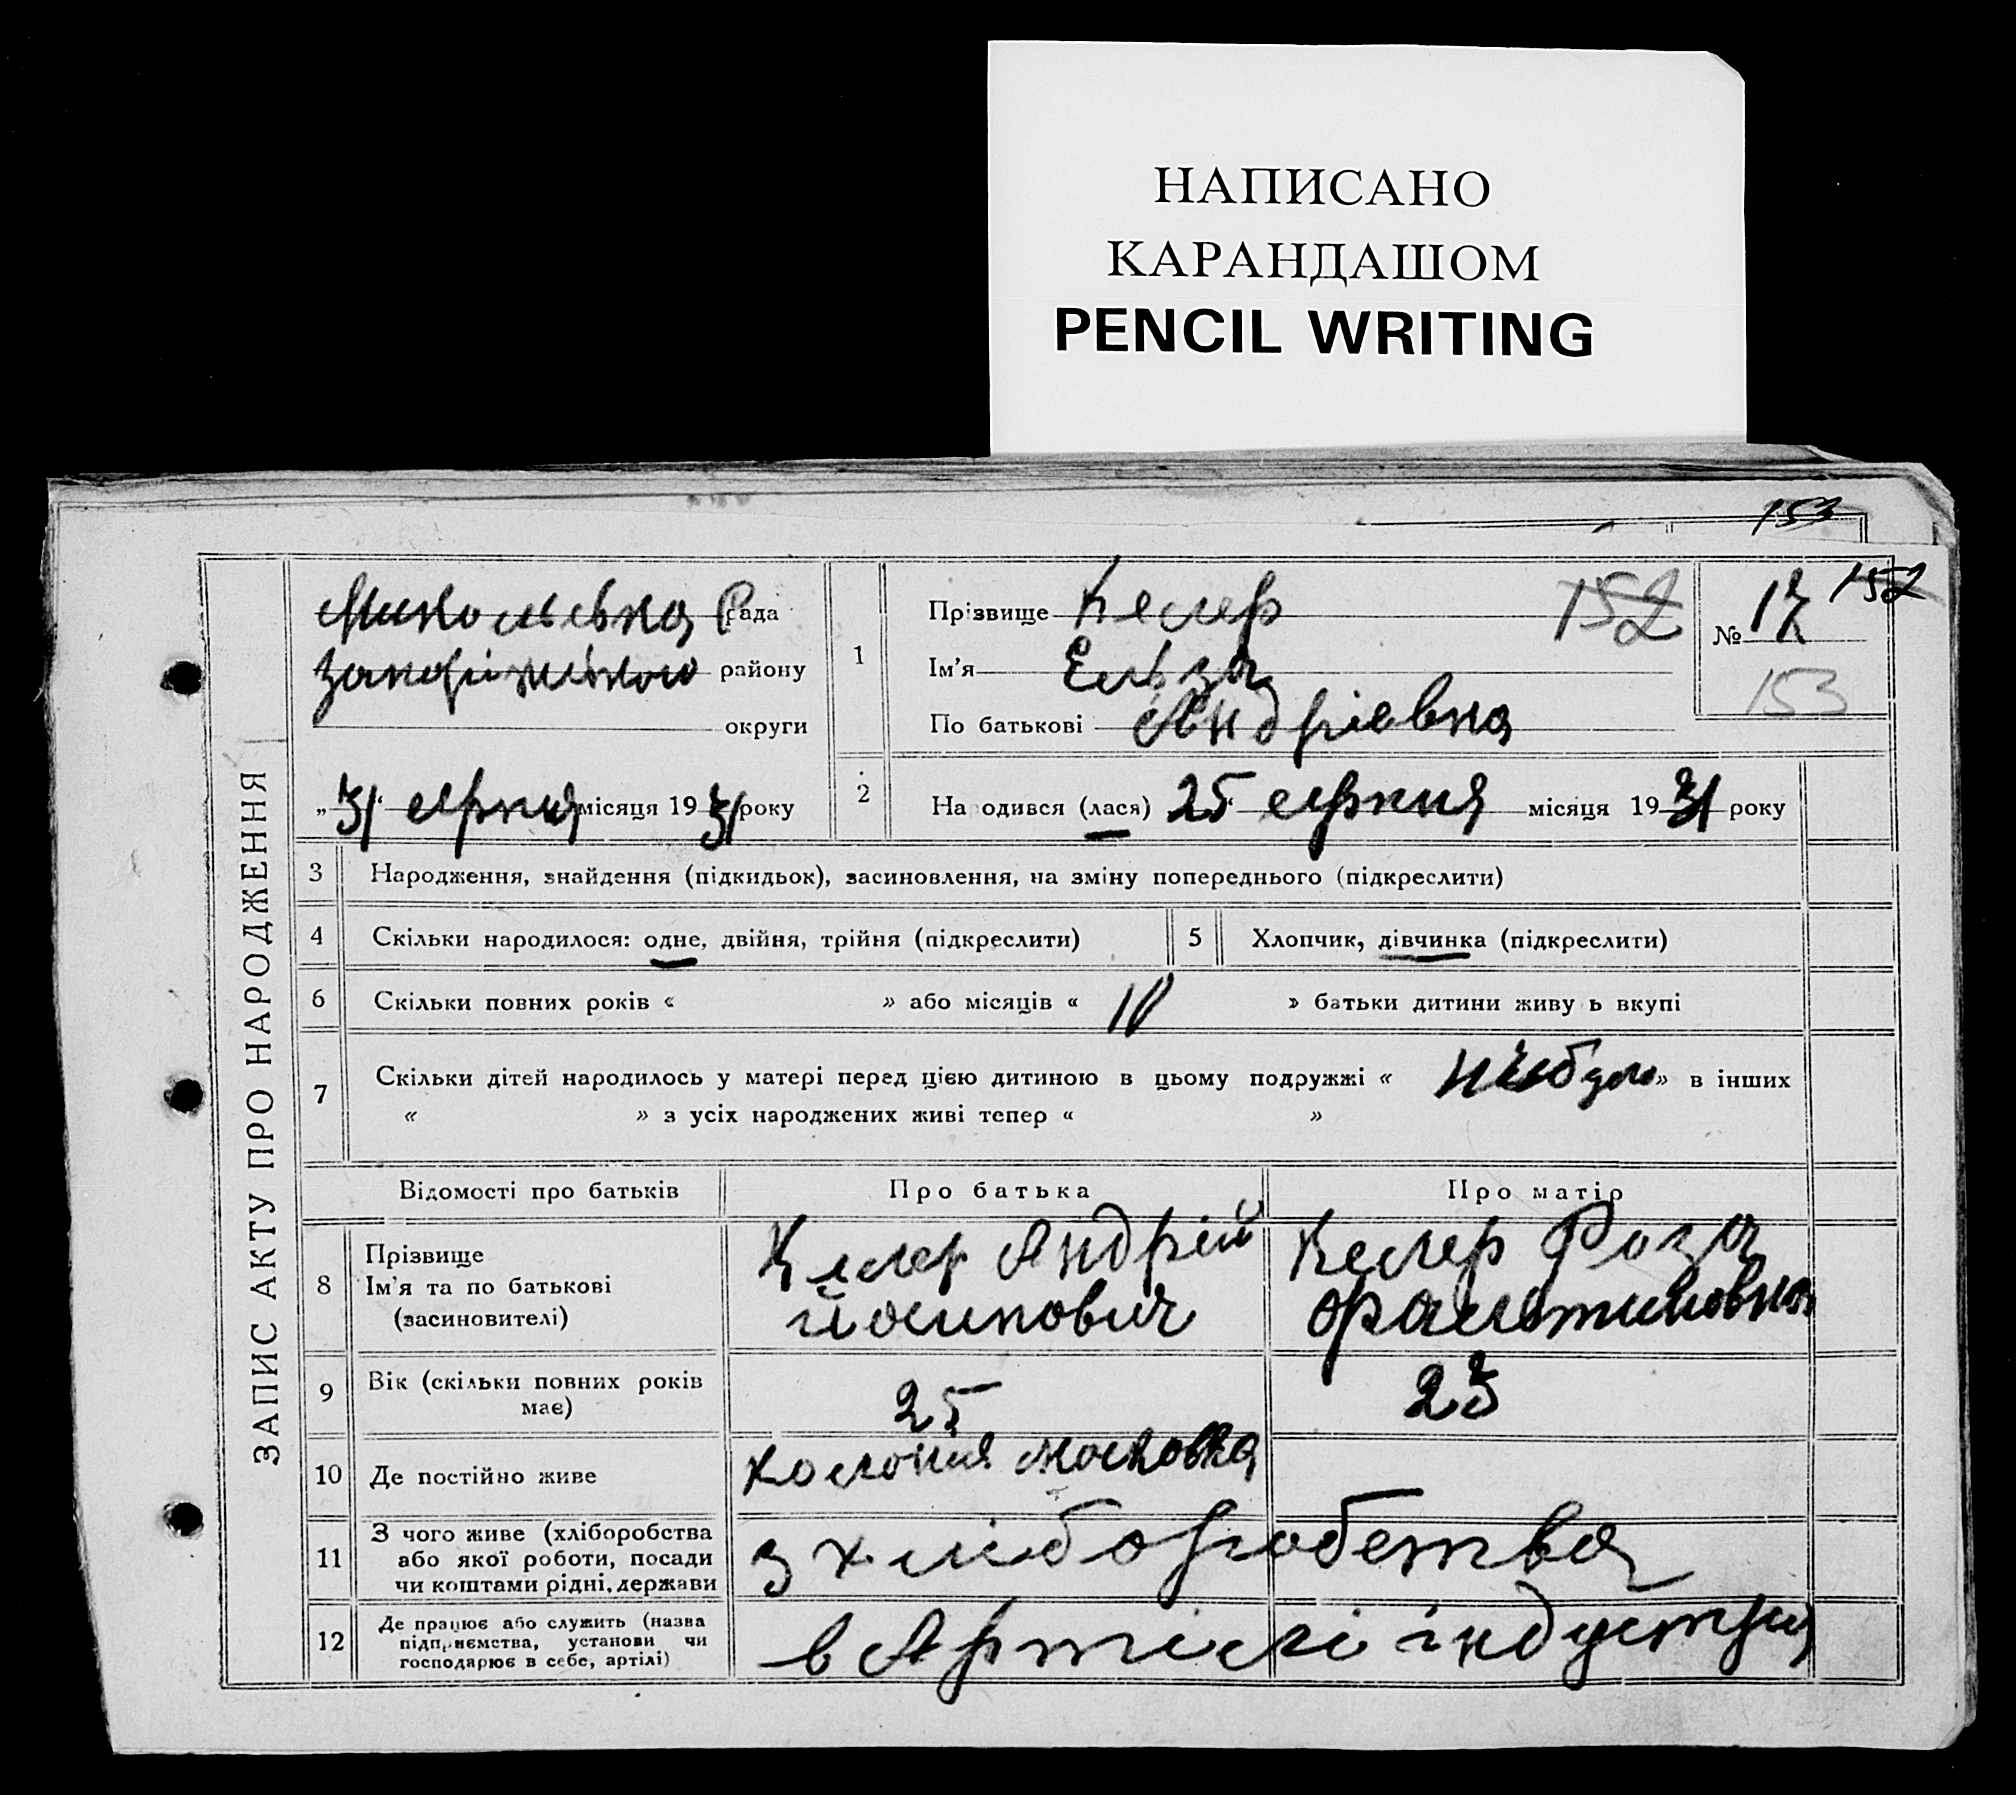 НАПИСАНО
КАРАНДАШОМ
PENCIL WRITING
153
ЗАПИС АКТУ ПРО НАРОДЖЕННЯ
Микольська Рада
району
округи
„31“ серпня місяця 1931 року
1
Прізвище Келер
Ім'я Ельза
По батькові Андрієвна
152
№ 17
152
153
2 На одився (лася) 25 серпня місяця 1931 року
3 Народження, знайдення (підкидьок), засиновлення, на зміну попереднього (підкреслити)
4 Скільки народилося: одне, двійня, трійня (підкреслити) 5 Хлопчик, дівчинка (підкреслити)
6 Скільки повних років « » або місяців « 10 » батьки дитини живу ь вкупі
7 Скільки дітей народилось у матері перед цією дитиною в цьому подружжі « » в інших
« » з усіх народжених живі тепер « »
Відомості про батьків Про батька Про матір
8 Прізвище
Ім'я та по батькові
(засиновителі)
Келер Андрій
Йосипович
Келер Роза
9 Вік (скільки повних років
має)
25
23
10 Де постійно живе колонія Московка
11 З чого живе (хліборобства
або якої роботи, посади
чи коштами рідні, держави
з хліборобства
12 Де працює або служить (назва
підприємства, установи чи
господарює в себе, артілі)
в Артілі індустрія